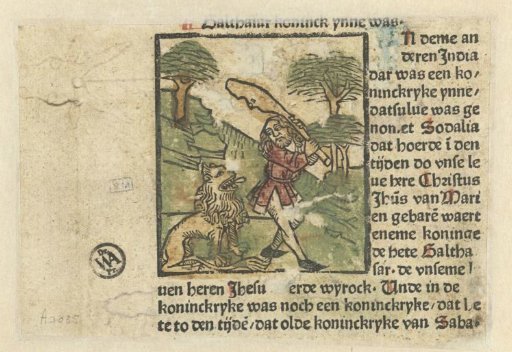 Balthasar koninck ynne was.
N deme an
deren India
dar was een ko/
ninckryke ynne/
datsulue was ge
non.et Sodalia
dat hoerde ī den
tijden do vnse le
ue here Christus
Jhūs van Mari
en gebarē waert
eneme koninge
de hete Baltha
sar. de vnseme l
uen heren Jhesu erde wyrock. Unde in de
koninckryke was noch een koninckryke/dat l.e
te to den tijdē/dat olde koninckryke van Saba.